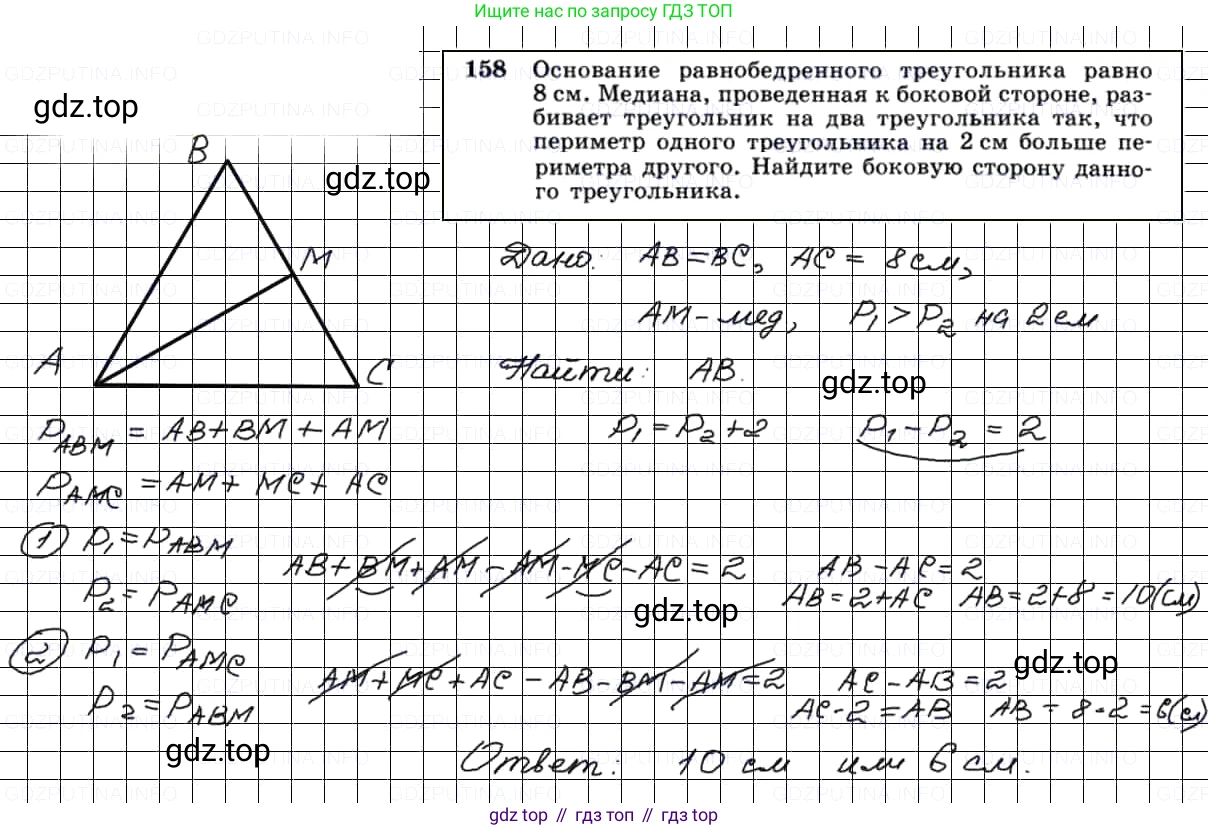 Ищите нас по запросу ГДЗ ТОП
158 Основание равнобедренного треугольника равно
8 см. Медиана, проведенная к боковой стороне, раз-
бивает треугольник на два треугольника так, что
периметр одного треугольника на 2 см больше пе-
риметра другого. Найдите боковую сторону данно-
го треугольника.
gdz.top
gdz.top
B
M
A
C
Дано: AB = BC, AC = 8 см,
AM - мед, P₁ > P₂ на 2 см
Найти: AB.
gdz.top
P_ABM = AB + BM + AM
P₁ = P₂ + 2 P₁ - P₂ = 2
P_AMC = AM + MC + AC
① P₁ = P_ABM
P₂ = P_AMC
AB + BM + AM - AM - MC - AC = 2
AB - AC = 2
AB = 2 + AC AB = 2 + 8 = 10 (см)
gdz.top
② P₁ = P_AMC
P₂ = P_ABM
AM + MC + AC - AB - BM - AM = 2
AC - AB = 2
AC - 2 = AB AB = 8 - 2 = 6 (см)
gdz.top
gdz.top
Ответ: 10 см или 6 см.
gdz top // гдз топ // gdz top
GDZPUTINA.INFO